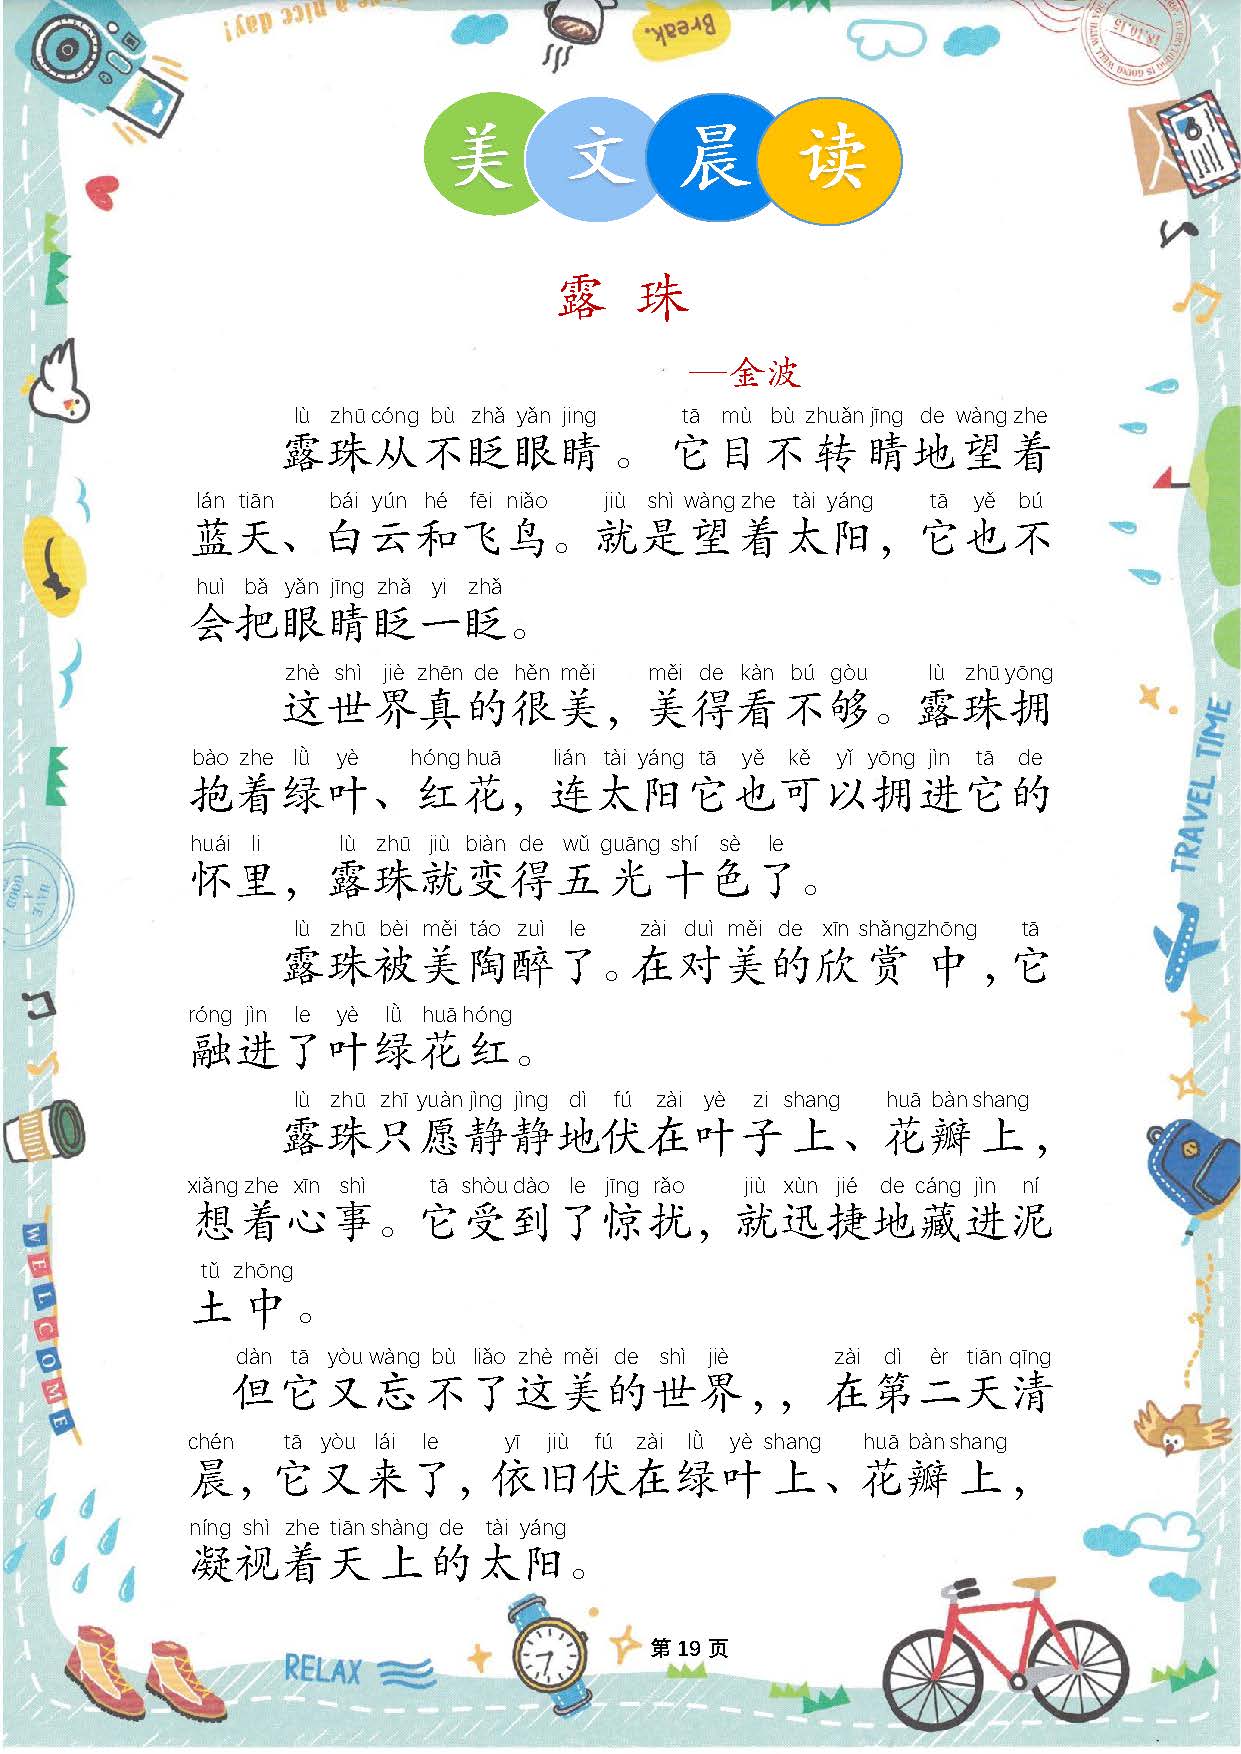 Have a nice day!
Break.
18.10.15
美文晨读
露 珠
—金波
lù zhū cóng bù zhǎ yǎn jing tā mù bù zhuǎn jīng de wàng zhe
露珠从不眨眼睛。它目不转睛地望着
lán tiān bái yún hé fēi niǎo jiù shì wàng zhe tài yáng tā yě bú
蓝天、白云和飞鸟。就是望着太阳，它也不
huì bǎ yǎn jīng zhǎ yi zhǎ
会把眼睛眨一眨。
zhè shì jiè zhēn de hěn měi měi de kàn bú gòu lù zhū yōng
这世界真的很美，美得看不够。露珠拥
bào zhe lǜ yè hóng huā lián tài yáng tā yě kě yǐ yōng jìn tā de
抱着绿叶、红花，连太阳它也可以拥进它的
huái li lù zhū jiù biàn de wǔ guāng shí sè le
怀里，露珠就变得五光十色了。
lù zhū bèi měi táo zuì le zài duì měi de xīn shǎng zhōng tā
露珠被美陶醉了。在对美的欣赏中，它
róng jìn le yè lǜ huā hóng
融进了叶绿花红。
lù zhū zhī yuàn jìng jìng dì fú zài yè zi shang huā bàn shang
露珠只愿静静地伏在叶子上、花瓣上，
xiǎng zhe xīn shì tā shòu dào le jīng rǎo jiù xùn jié de cáng jìn ní
想着心事。它受到了惊扰，就迅捷地藏进泥
tǔ zhōng
土中。
dàn tā yòu wàng bù liǎo zhè měi de shì jiè zài dì èr tiān qīng
但它又忘不了这美的世界，，在第二天清
chén tā yòu lái le yī jiù fú zài lǜ yè shang huā bàn shang
晨，它又来了，依旧伏在绿叶上、花瓣上，
níng shì zhe tiān shàng de tài yáng
凝视着天上的太阳。
TRAVEL TIME
WELCOME
RELAX
第 19 页